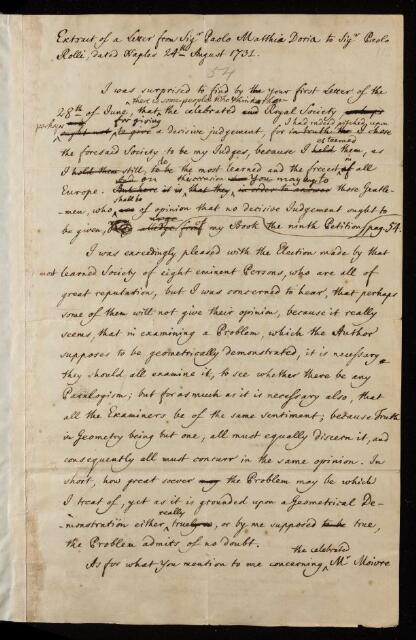 Extract of a Letter from Sigr. Paolo Matthia Doria to Sigr. Paolo
Rolli, dated Naples 24th August 1731.
54
I was surprized to find by the your first Letter of the
there is some people who think
28th of June, that the celebrated and Royal Society
for giving I had indeed pitched upon
perhaps ought not, to give a decisive judgement, for in truth I chose
the foresaid Society to be my Judges, because I held them, as
esteemed
I held them still, to be the most learned and the freeest of all
Europe. But here it is, that they, in order to answer those Gentle-
on this occasion You may
shall be
-men, who are of opinion that no decisive Judgement ought to
be given, my Book the ninth Petition pag. 54.
I was exceedingly pleased with the Election made by that
most learned Society of eight eminent Persons, who are all of
great reputation, but I was concerned to hear, that perhaps
some of them will not give their opinion, because it really
seems, that in examining a Problem, which the Author
supposes to be geometrically demonstrated, it is necessary
they should all examine it, to see whether there be any
Paralogism; but forasmuch as it is necessary also, that
all the Examiners be of the same sentiment; because Truth
in Geometry being but one, all must equally discern it, and
consequently all must concurr in the same opinion. In
short, how great soever may the Problem may be which
I treat of, yet as it is grounded upon a Geometrical De-
really
-monstration either true, or by me supposed to be true,
the Problem admits of no doubt.
the celebrated
As for what You mention to me concerning Mr. Moivre